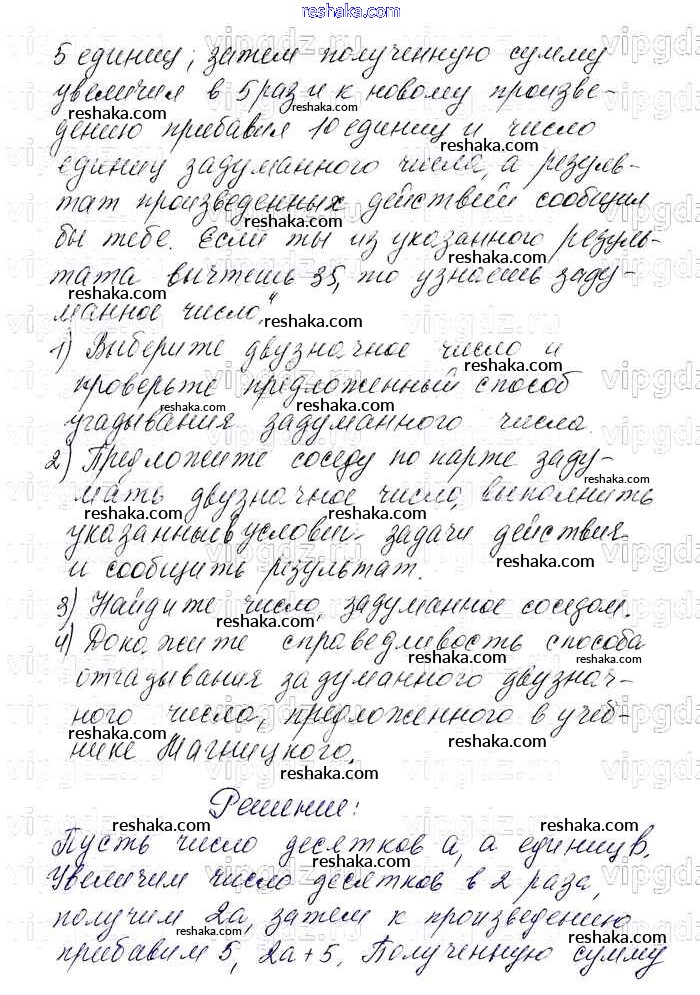 reshaka.com
5 единиц; затем полученную сумму
увеличил в 5 раз и к новому произве-
дению прибавил 10 единиц и число
единиц задуманного числа, а резуль-
тат произведенных действий сообщил
бы тебе. Если ты из указанного резуль-
тата вычтешь 35, то узнаешь заду-
манное число."
1) Выберите двузначное число и
проверьте предложенный способ
угадывания задуманного числа.
2) Предложите соседу по парте заду-
мать двузначное число, выполнить
указанные в условии задачи действия
и сообщить результат.
3) Найдите число, задуманное соседом.
4) Докажите справедливость способа
отгадывания задуманного двузнач-
ного числа, предложенного в учеб-
нике Магницкого.
Решение:
Пусть число десятков а, а единиц в.
Увеличим число десятков в 2 раза,
получим 2а, затем к произведению
прибавим 5, 2а+5. Полученную сумму